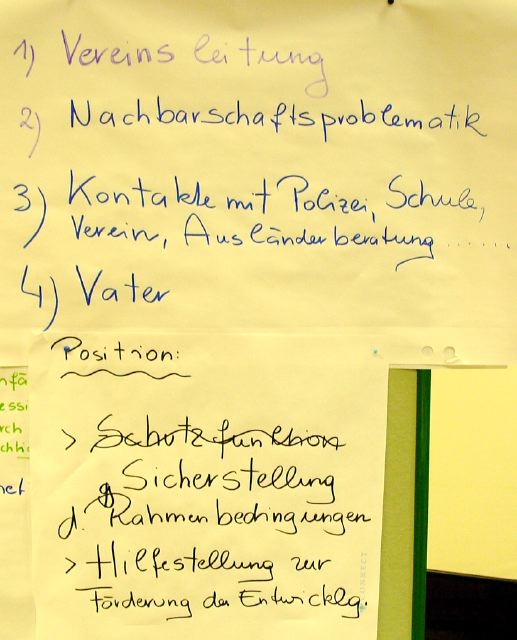 1) Vereinsleitung
2) Nachbarschaftsproblematik
3) Kontakte mit Polizei, Schule,
Verein, Ausländerberatung.......
4) Vater
Position:
> Schutzfunktion
Sicherstellung
d. Rahmenbedingungen
> Hilfestellung zur
Förderung der Entwicklg.